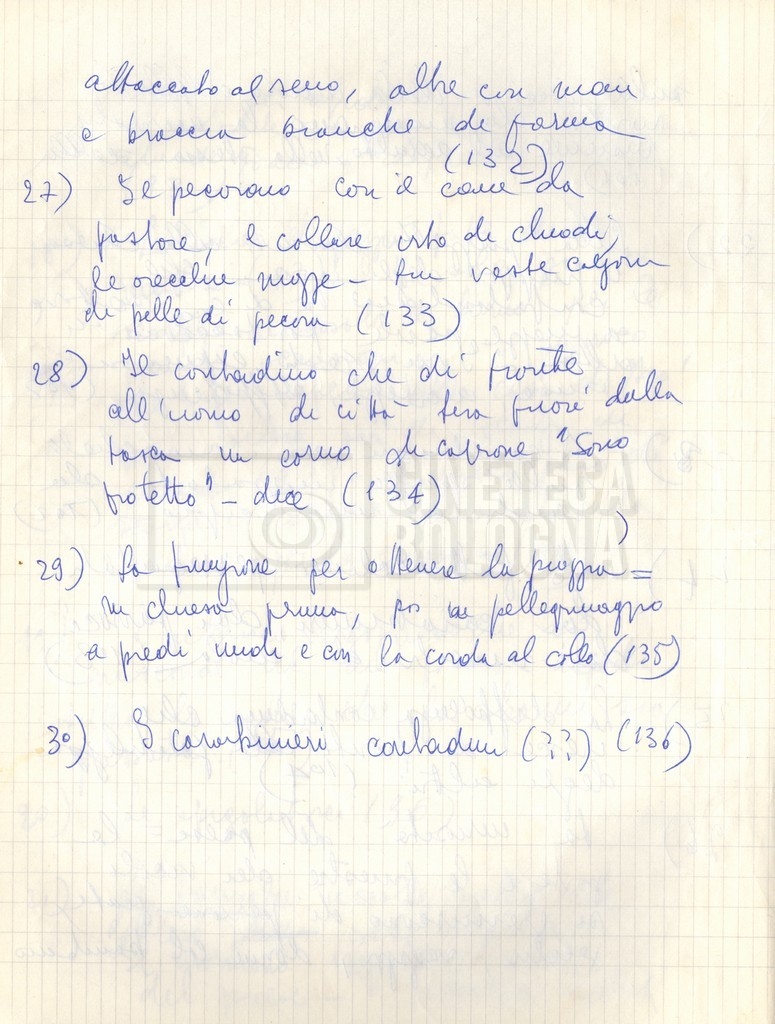 attaccato al seno, altre con mani
e braccia bianche di farina
(132)
27) Il pecoraro con il cane da
pastore, e collare irto di chiodi,
le orecchie mozze - tu veste calzoni
di pelle di pecora (133)
28) Il contadino che di fronte
all'uomo di città tira fuori dalla
tasca un corno di caprone "Sono
protetto" - dice (134)
CINETECA
BOLOGNA
29) La funzione per ottenere la pioggia =
in chiesa prima, poi in pellegrinaggio
a piedi nudi e con la corda al collo (135)
30) I carabinieri contadini (??) (136)